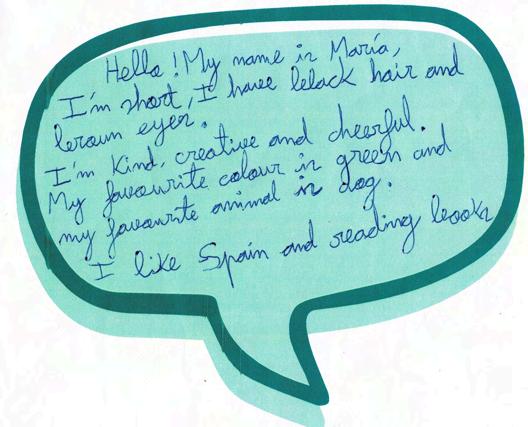 Hello! My name is María,
I'm short, I have black hair and
brown eyes.
I'm kind, creative and cheerful.
My favourite colour is green and
my favourite animal is dog.
I like Spain and reading books